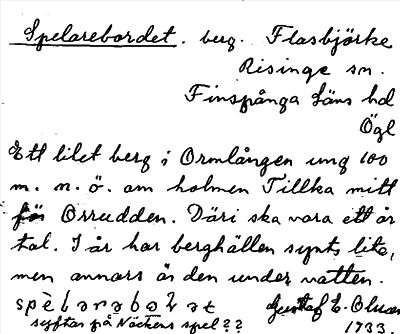 Spelarebordet. berg. Flasbjörke
Risinge sn.
Finspånga läns hd
Ögl
Ett litet berg i Ormlången ung 100
m. n. ö. om holmen Tillka mitt
för Orrudden. Däri ska vara ett år
tal. I år har berghällen synts lite,
men annars är den under vatten.
spèlarabolet Gustaf E. Olsson
syftar på Näckens spel?? 1933.